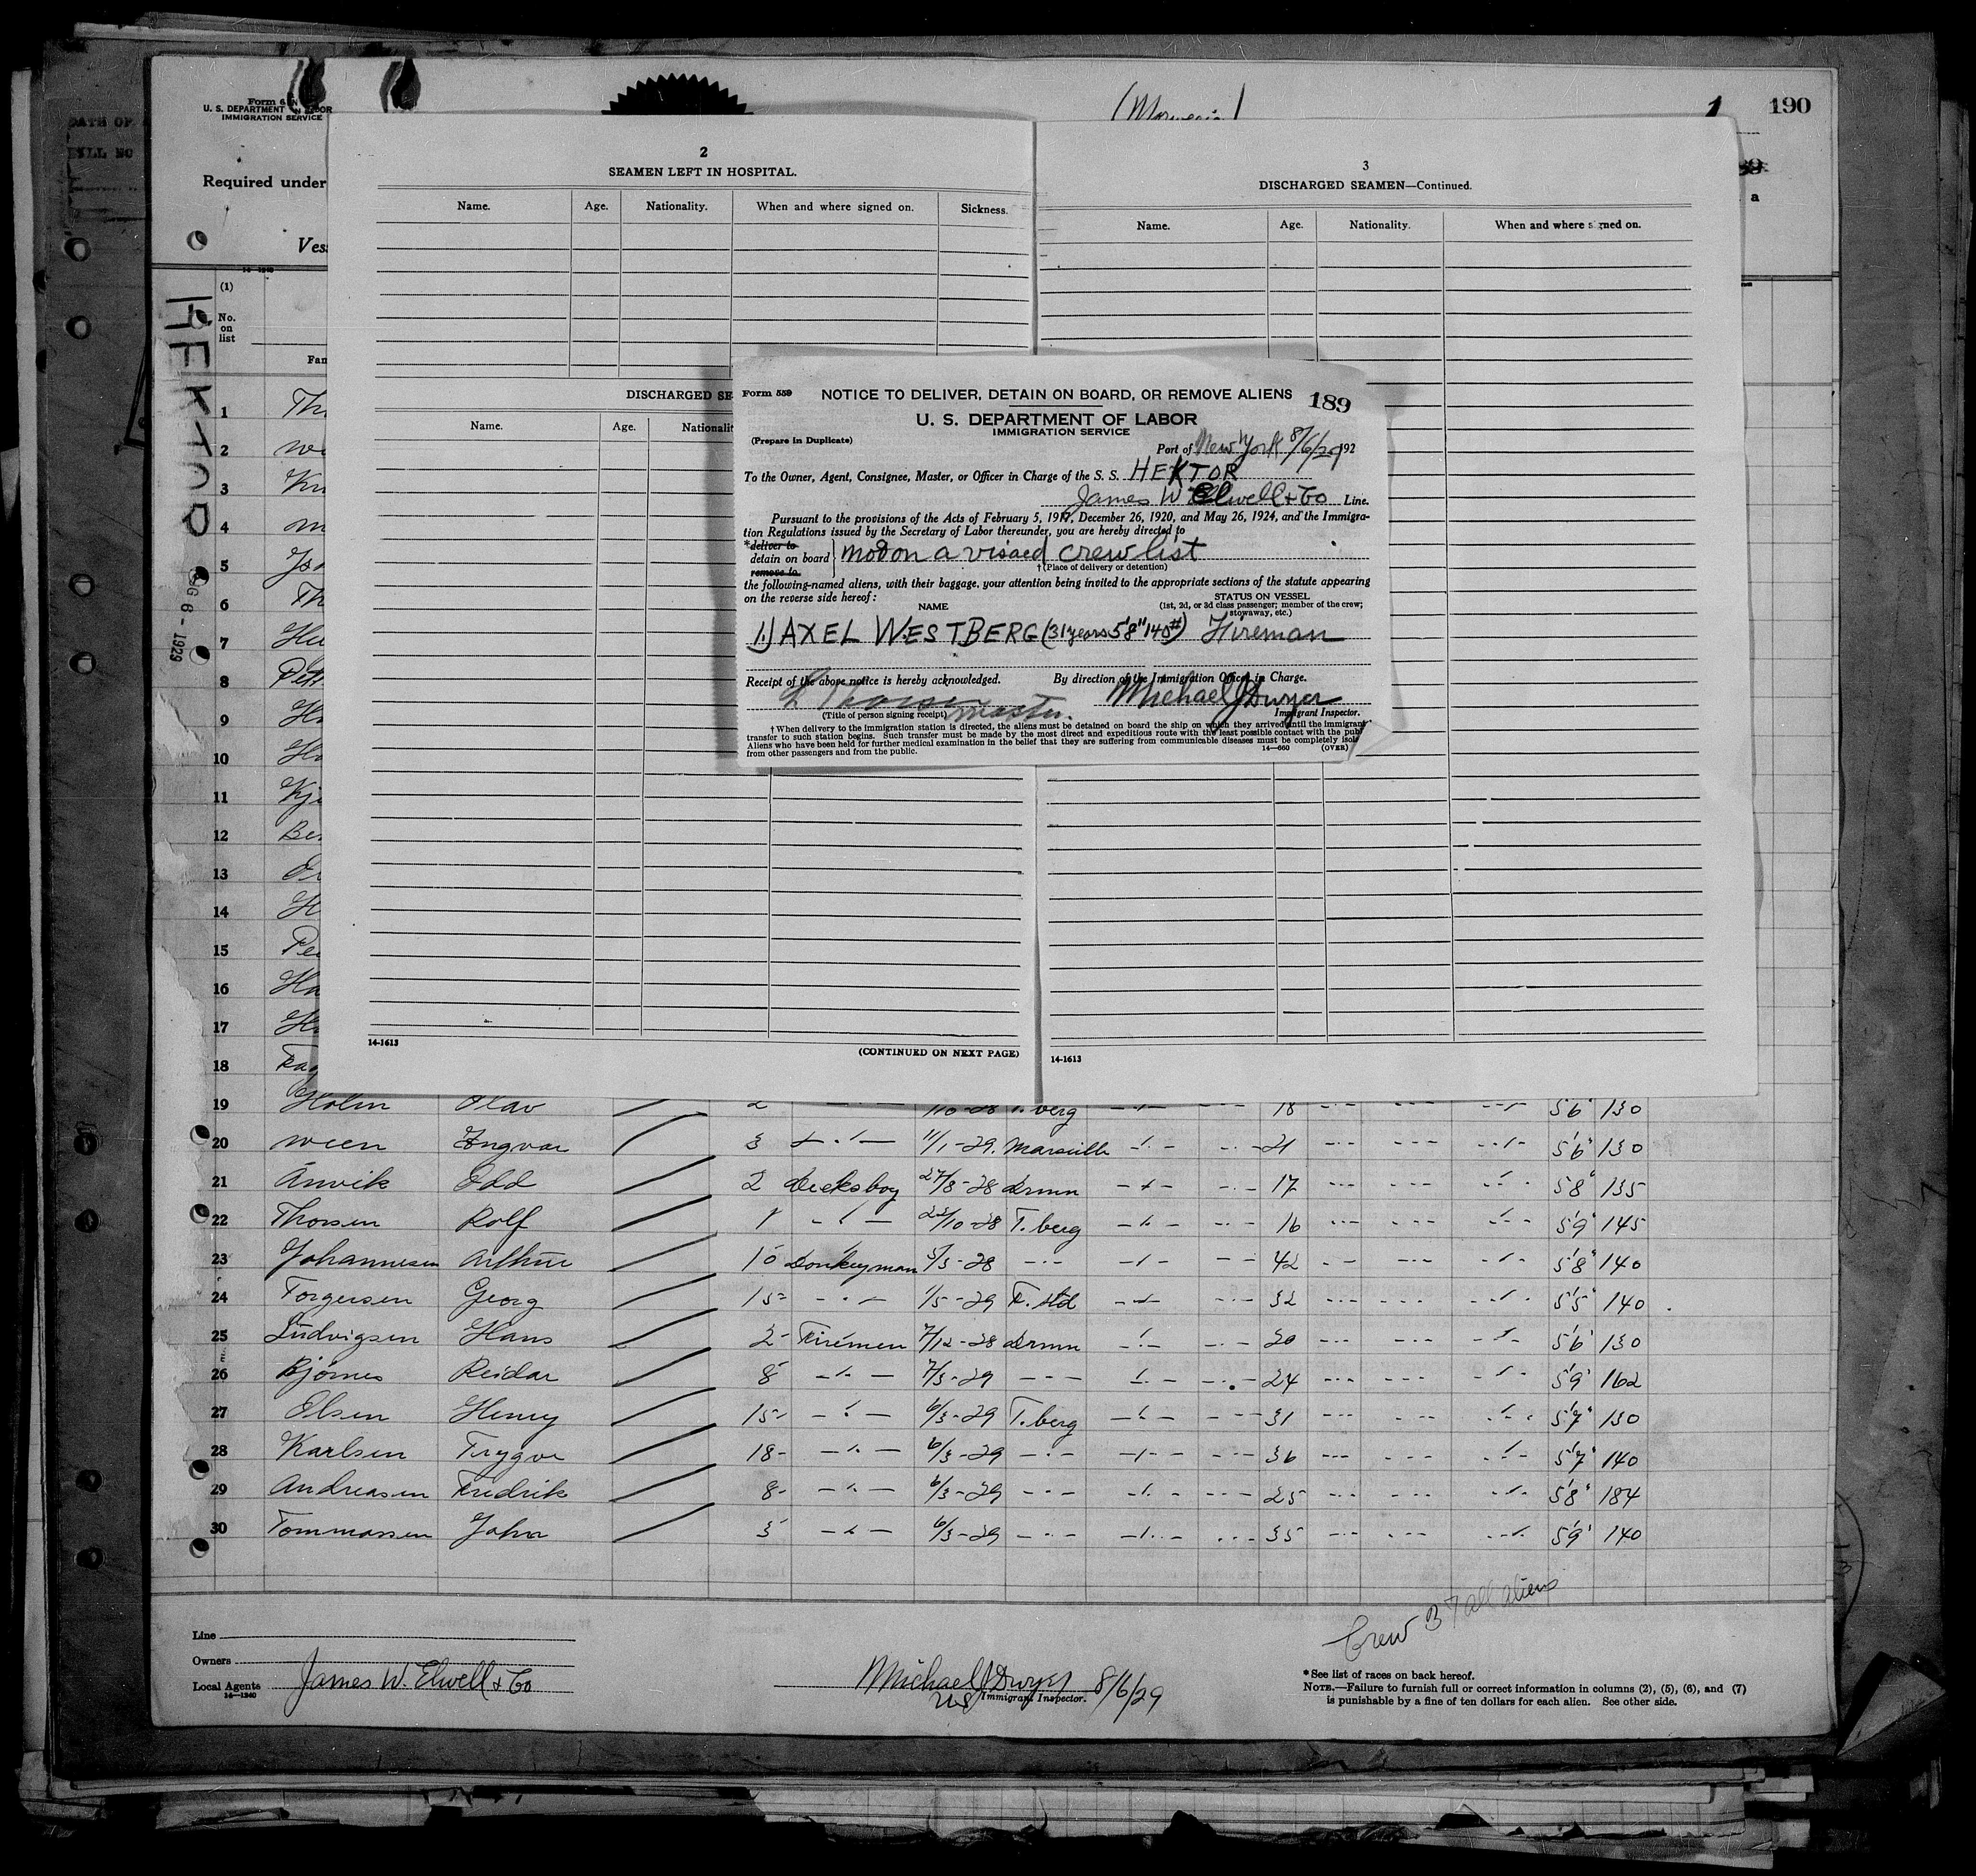 190
Form 6
U. S. DEPARTMENT OF LABOR
IMMIGRATION SERVICE
(Norwegian)
1
Required under
Vess
HEKTOR
AUG 6 - 1929
(1)
No.
on
list
Fam
2
SEAMEN LEFT IN HOSPITAL.
Name. Age. Nationality. When and where signed on. Sickness.
DISCHARGED SE
Name. Age. Nationalit
14-1613
(CONTINUED ON NEXT PAGE)
3
DISCHARGED SEAMEN—Continued.
Name. Age. Nationality. When and where signed on.
14-1613
Form 559 NOTICE TO DELIVER, DETAIN ON BOARD, OR REMOVE ALIENS 189
U. S. DEPARTMENT OF LABOR
IMMIGRATION SERVICE
(Prepare in Duplicate)
Port of New York 8/6/29 192
To the Owner, Agent, Consignee, Master, or Officer in Charge of the S. S. HEKTOR
James W Elwell & Co Line.
Pursuant to the provisions of the Acts of February 5, 1917, December 26, 1920, and May 26, 1924, and the Immigra-
tion Regulations issued by the Secretary of Labor thereunder, you are hereby directed to
*deliver to
detain on board not on a visaed crew list
remove to
†(Place of delivery or detention)
the following-named aliens, with their baggage, your attention being invited to the appropriate sections of the statute appearing
on the reverse side hereof:
NAME STATUS ON VESSEL
(1st, 2d, or 3d class passenger; member of the crew;
stowaway, etc.)
1) AXEL WESTBERG (31 years 5'8" 140#) Fireman
Receipt of the above notice is hereby acknowledged. By direction of the Immigration Officer in Charge.
Michael J Dwyer
master.
(Title of person signing receipt) Immigrant Inspector.
† When delivery to the immigration station is directed, the aliens must be detained on board the ship on which they arrived until the immigrant
transfer to such station begins. Such transfer must be made by the most direct and expeditious route with the least possible contact with the publ
Aliens who have been held for further medical examination in the belief that they are suffering from communicable diseases must be completely isol
from other passengers and from the public. 14—660 (OVER)
1 Th
2 We
3 Kn
4 M
5
6 Th
7
8 Pett
9
10
11 Kj
12 Be
13
14 H
15 Pe
16 Ha
17
18 Rag
19 Holm Olav 2 1/10-28 T.berg 18 5'6" 130
20 Ween Ingvar 3 11/1-29. Marseille 21 5'6" 130
21 Anvik Odd 2 Decksboy 27/8-28 Drmn 17 5'8" 135
22 Thorsen Rolf 1 22/10-28 T.berg 16 5'9" 145
23 Johannesen Arthur 10 Donkeyman 5/3-28 42 5'8" 140
24 Torgersen Georg 15 1/5-29 F.std 32 5'5" 140
25 Ludvigsen Hans 2 Firemen 7/12-28 Drmn 20 5'6" 130
26 Bjørnes Reidar 8 7/3-29 24 5'9" 162
27 Olsen Henry 15 6/3-29 T.berg 31 5'7" 130
28 Karlsen Trygve 18 6/3-29 36 5'7" 140
29 Andreasen Fredrik 8 6/3-29 25 5'8" 184
30 Tommassen Johan 3 6/3-29 35 5'9" 140
Crew 37 all aliens
Line
Owners
Local Agents James W. Elwell & Co
14—1240
Michael J Dwyer 8/6/29
US Immigrant Inspector.
*See list of races on back hereof.
NOTE.—Failure to furnish full or correct information in columns (2), (5), (6), and (7)
is punishable by a fine of ten dollars for each alien. See other side.